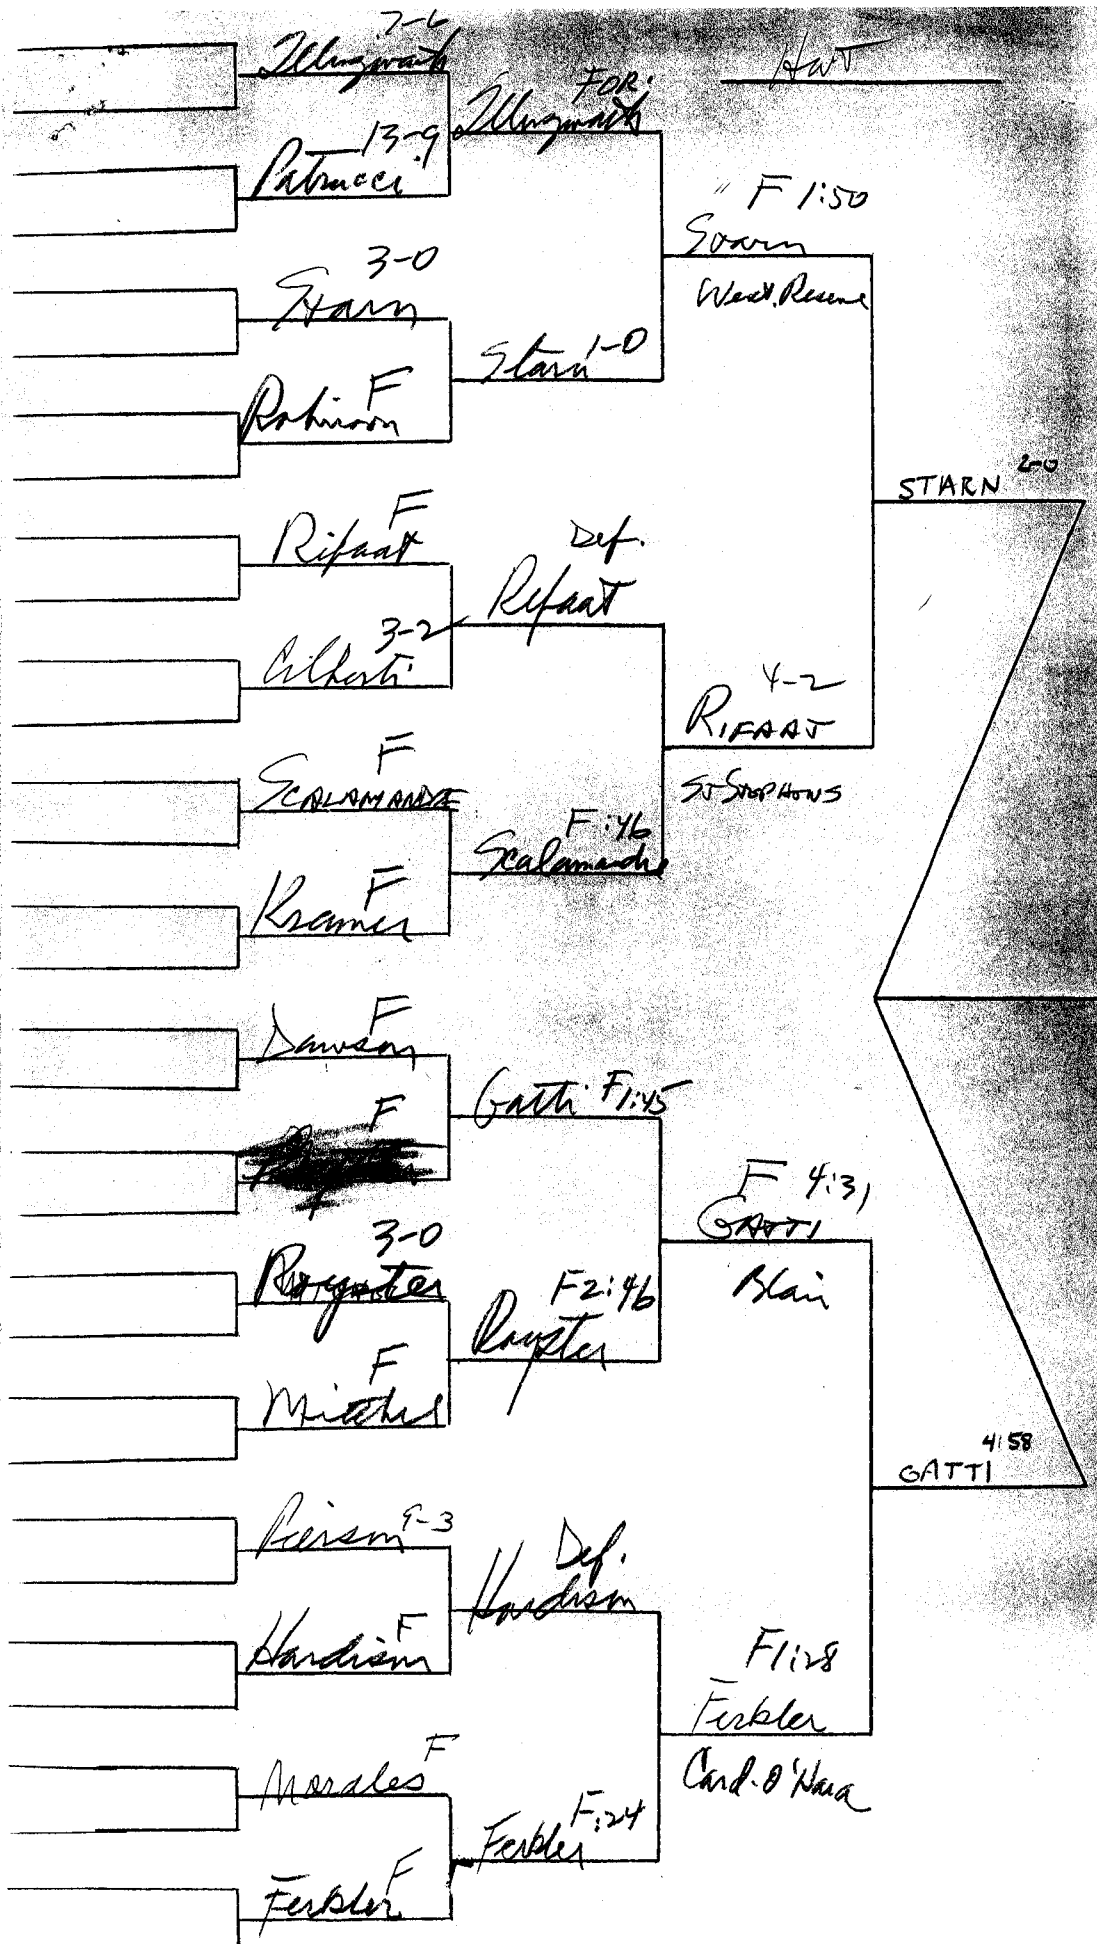 7-6
Illingwaith
13-9
Patrucci
3-0
Starn
F
Robinson
F
Rifaat
3-2
Ciliberti
F
SCALAMANDRE
F
Kramer
F
Dawson
F
3-0
Royster
F
Mitchel
Pierson 9-3
F
Hardison
F
Morales
F
Ferkler
FOR.
Illingwaith
Starn 1-0
Def.
Refaat
F :46
Scalamandre
Gatti F 1:45
F 2:46
Royster
Def.
Hardison
Ferkler F :24
F 1:50
Starn
West. Reserve
4-2
RIFAAT
ST STEPHENS
F 4:31
GATTI
Blair
F 1:28
Ferkler
Card. O'Hara
STARN 2-0
4:58
GATTI